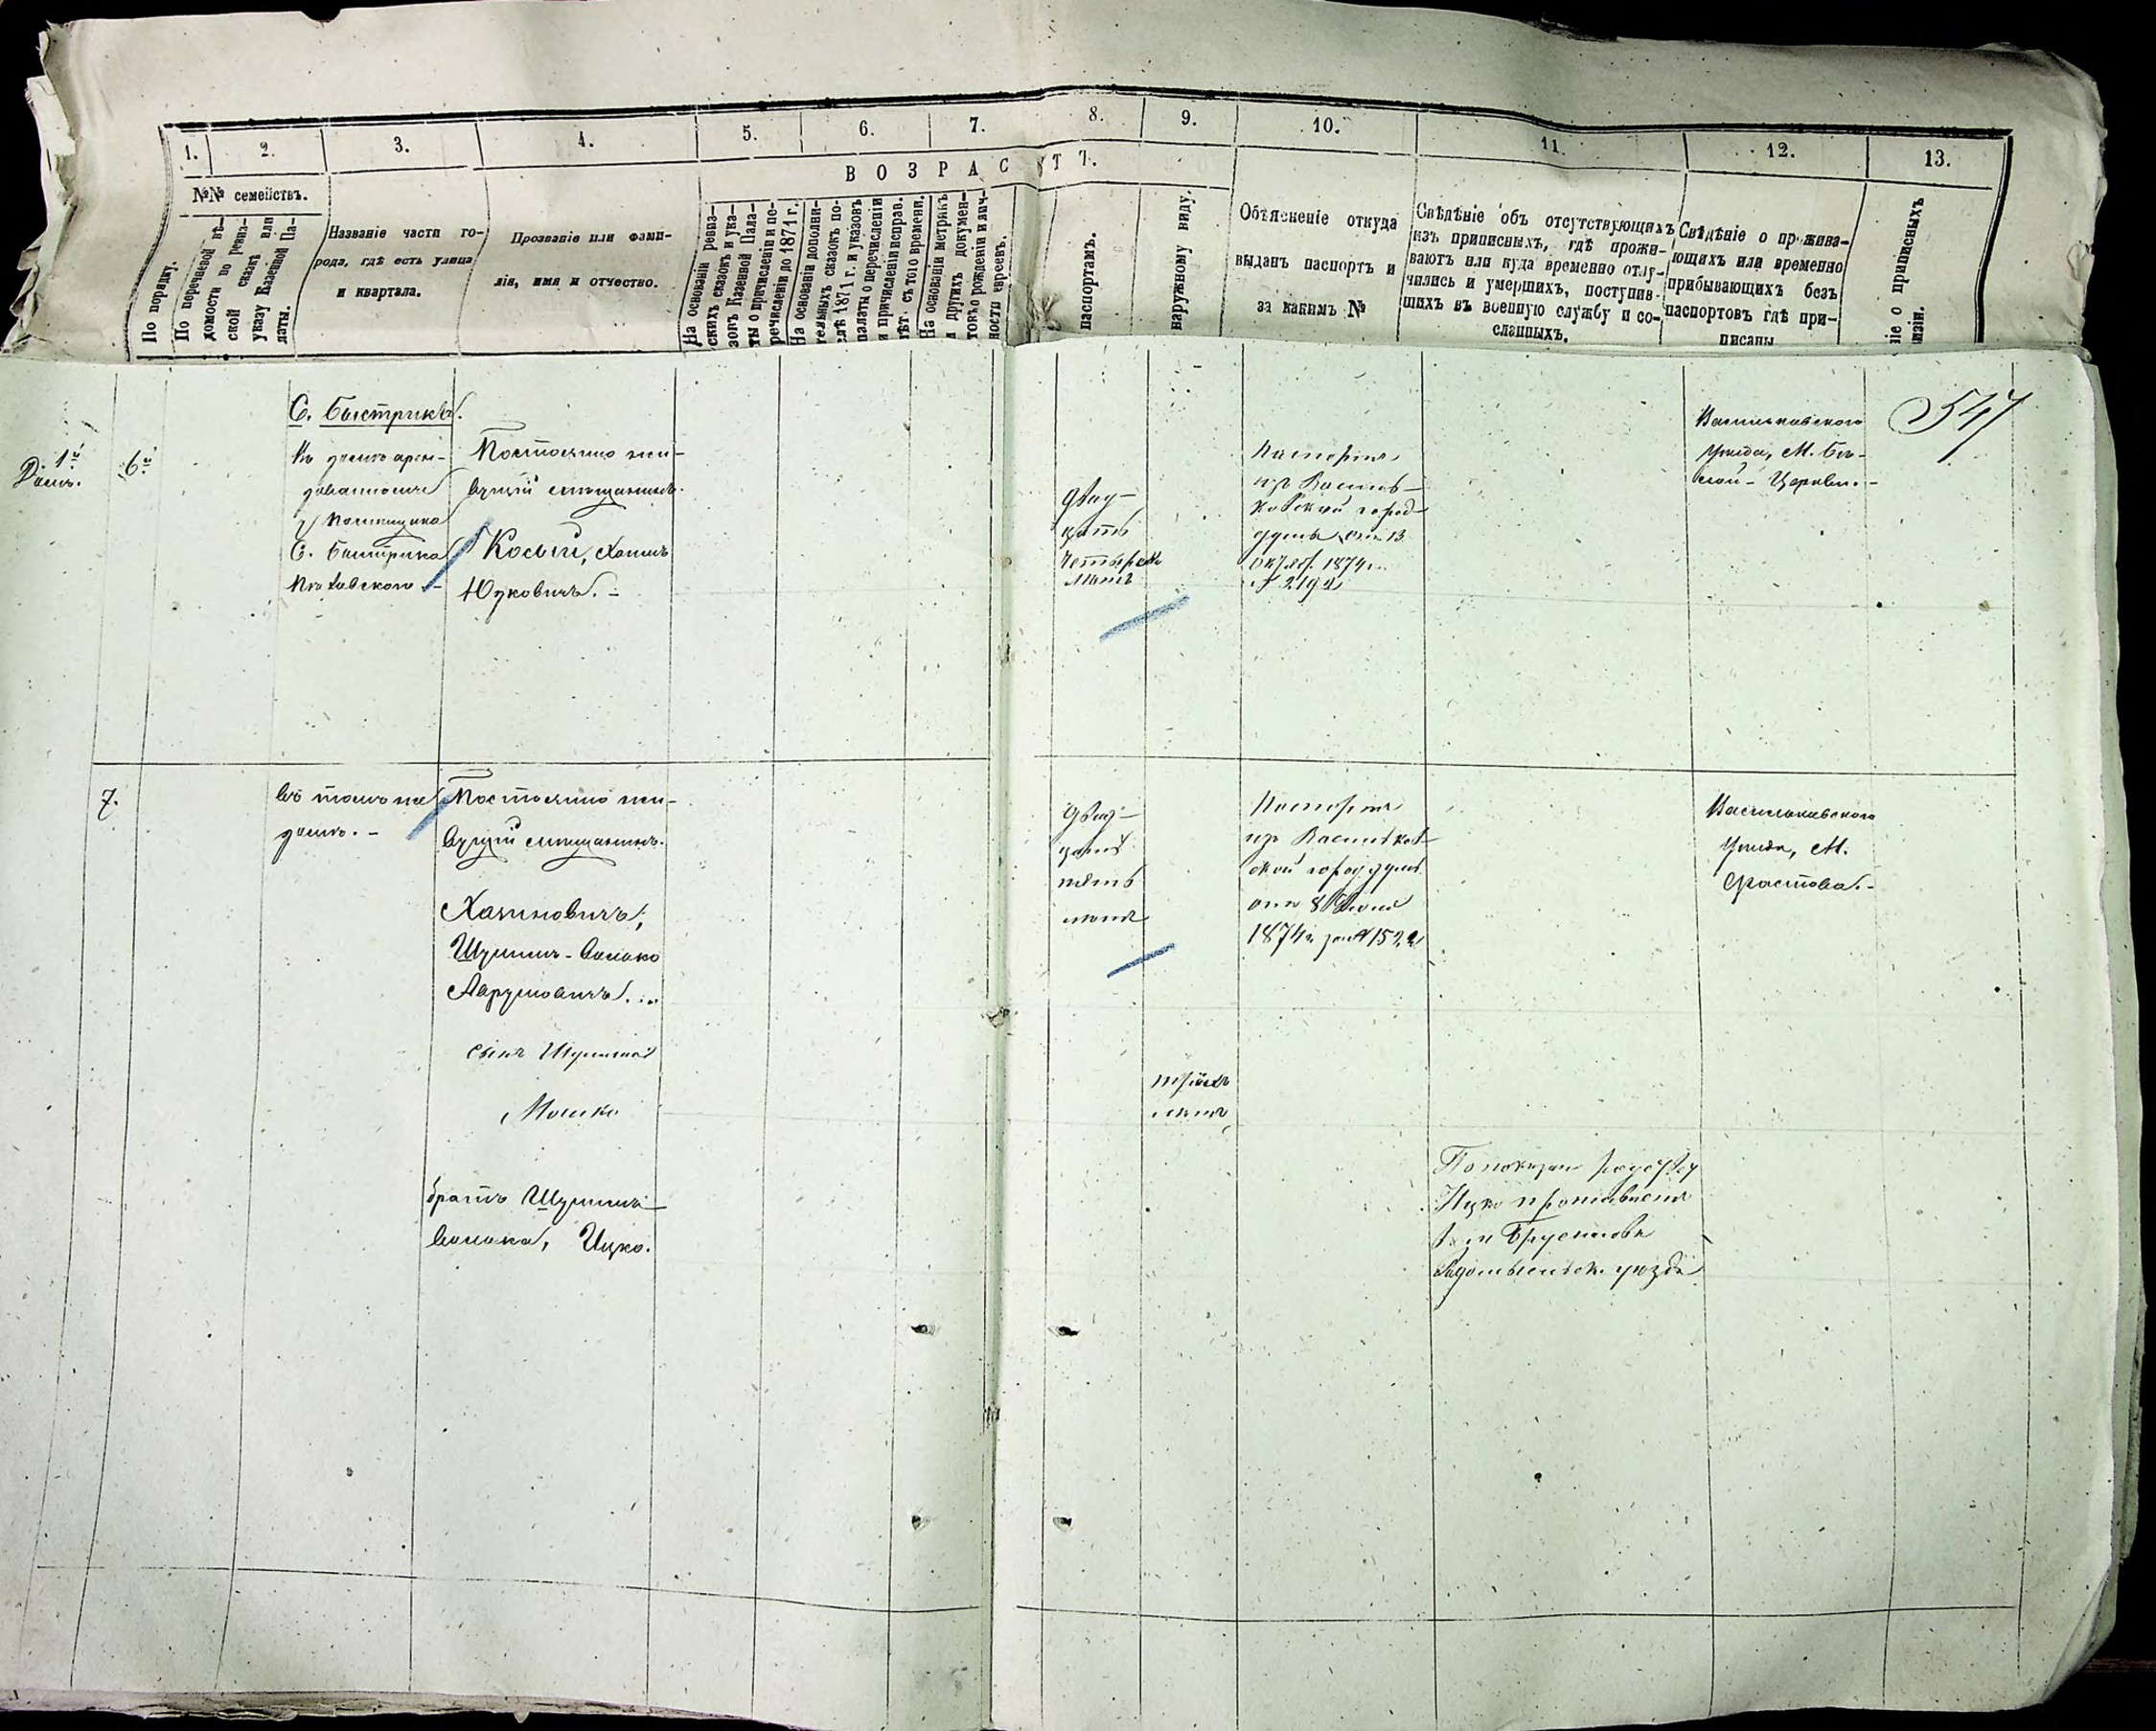 1. 2. 3. 4. 5. 6. 7. 8. 9. 10. 11. 12. 13.
ВОЗРАСТЪ.
№№ семействъ.
По порядку.
По перечневой вѣ-
домости по ревиз-
ской сказкѣ или
указу Казенной Па-
латы.
Названіе части го-
рода, гдѣ есть улица
и квартала.
Прозваніе или фами-
лія, имя и отчество.
На основаніи ревиз-
скихъ сказокъ и ука-
зовъ Казенной Пала-
ты о причисленіи и пе-
речисленіи до 1871 г.
На основаніи дополни-
тельныхъ сказокъ по-
слѣ 1871 г. и указовъ
палаты о перечисленіи
и причисленіи исправ.
лѣт. съ того времени.
На основаніи метрикъ
и других документ-
товъ о рожденіи и лич-
ности евреевъ.
паспортамъ.
наружному виду.
Объясненіе откуда
выданъ паспортъ и
за какимъ №
Свѣдѣніе объ отсутствующихъ
изъ приписныхъ, гдѣ прожи-
ваютъ или куда временно отлу-
чились и умершихъ, поступив-
шихъ въ военную службу и со-
сланныхъ.
Свѣдѣніе о прожива-
ющихъ или временно
прибывающихъ безъ
паспортовъ гдѣ при-
писаны
ніе о приписныхъ
визіи.
547
1й
Домъ.
6й
С. Быстрикъ.
въ домѣ арен-
дованномъ
у помѣщика
С. Быстрика
Постоянно жи-
вущій мѣщанинъ.
Косый, Хаимъ
Юзковичъ. -
двад-
цать
четыре
лѣтъ
Паспортъ
изъ Василь-
ковской город
думы отъ 13
Октяб. 1874 г.
№ 2192
Васильковского
уѣзда, М. Бѣ-
лой - Церкви. -
7.
въ томъ же
домѣ. -
Постоянно жи-
вущій мѣщанинъ.
Хазиновичъ,
Шулимъ-Волько
Аврумовичъ.
двад-
цать
пять
лѣтъ
Паспортъ
изъ Васильков-
ской город думы
отъ 8 Июня
1874 г. за № 1522
Васильковского
уѣзда, М.
Фастова. -
сынъ Шулима
Мошко
трёхъ
лѣтъ
братъ Шулима-
Волька, Ицко.
По показан.
Ицко проживаетъ
въ м Брусилове
Радомысльск. уѣзда